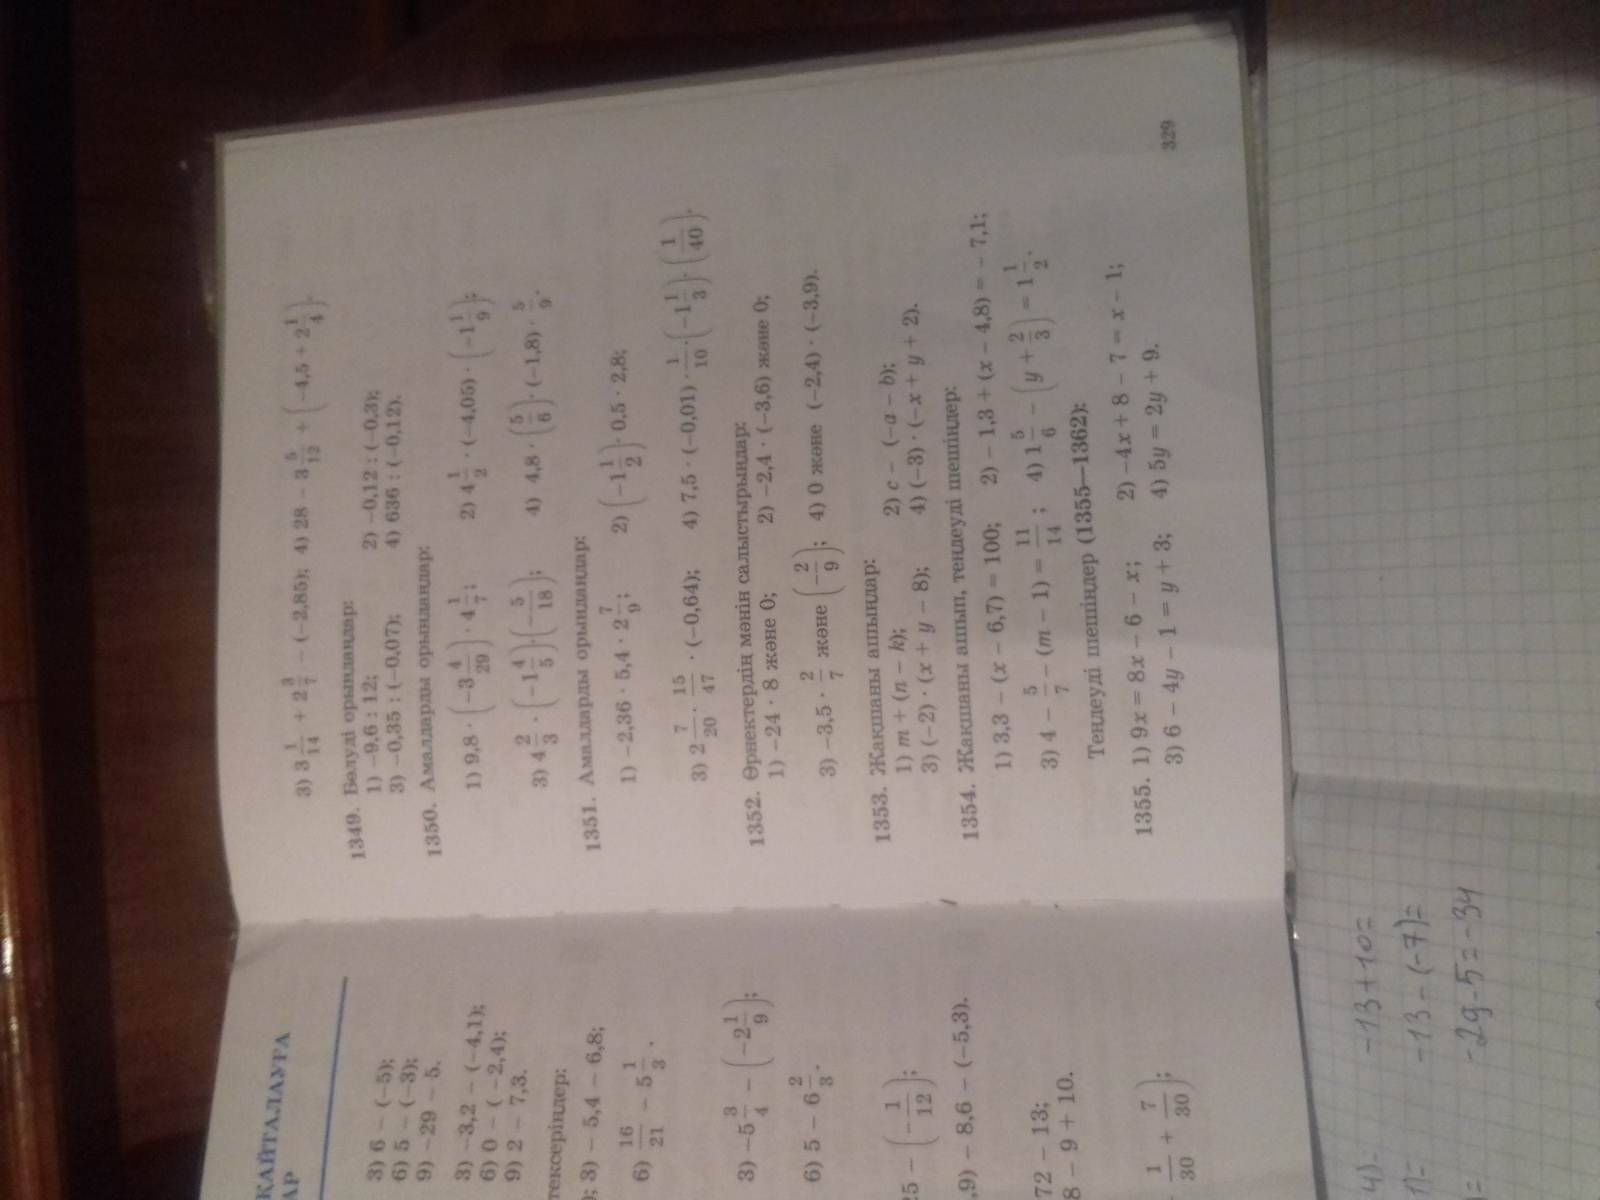 ҚАЙТАЛАУҒА
АР
3) 6 − (−5);
6) 5 − (−3);
9) −29 − 5.
3) −3,2 − (−4,1);
6) 0 − ( −2,4);
9) 2 − 7,3.
тексеріңдер:
); 3) − 5,4 − 6,8;
6) 16/21 − 5 1/3 .
3) −5 3/4 − (−2 1/9);
6) 5 − 6 2/3 .
25 − (− 1/12);
,9) − 8,6 − (−5,3).
72 − 13;
8 − 9 + 10.
1/30 + 7/30);
3) 3 1/14 + 2 3/7 − (−2,85); 4) 28 − 3 5/12 + (−4,5 + 2 1/4).
1349. Бөлуді орындаңдар:
1) −9,6 : 12; 2) −0,12 : (−0,3);
3) −0,35 : (−0,07); 4) 636 : (−0,12).
1350. Амалдарды орындаңдар:
1) 9,8 · (−3 4/29) · 4 1/7; 2) 4 1/2 · (−4,05) · (−1 1/9);
3) 4 2/3 · (−1 4/5) · (− 5/18); 4) 4,8 · (5/6) · (−1,8) · 5/9 .
1351. Амалдарды орындаңдар:
1) −2,36 · 5,4 · 2 7/9; 2) (−1 1/2) · 0,5 · 2,8;
3) 2 7/20 · 15/47 · (−0,64); 4) 7,5 · (−0,01) · 1/10 · (−1 1/3) · (1/40).
1352. Өрнектердің мәнін салыстырыңдар:
1) −24 · 8 және 0; 2) −2,4 · (−3,6) және 0;
3) −3,5 · 2/7 және (− 2/9); 4) 0 және (−2,4) · (−3,9).
1353. Жақшаны ашыңдар:
1) m + (n − k); 2) c − (−a − b);
3) (−2) · (x + y − 8); 4) (−3) · (−x + y + 2).
1354. Жақшаны ашып, теңдеуді шешіңдер:
1) 3,3 − (x − 6,7) = 100; 2) − 1,3 + (x − 4,8) = − 7,1;
3) 4 − 5/7 − (m − 1) = 11/14 ; 4) 1 5/6 − (y + 2/3) = 1 1/2 .
Теңдеуді шешіңдер (1355—1362):
1355. 1) 9x = 8x − 6 − x; 2) −4x + 8 − 7 = x − 1;
3) 6 − 4y − 1 = y + 3; 4) 5y = 2y + 9.
329
4)= −13+10=
1)= −13−(−7)=
= −29−5=−34